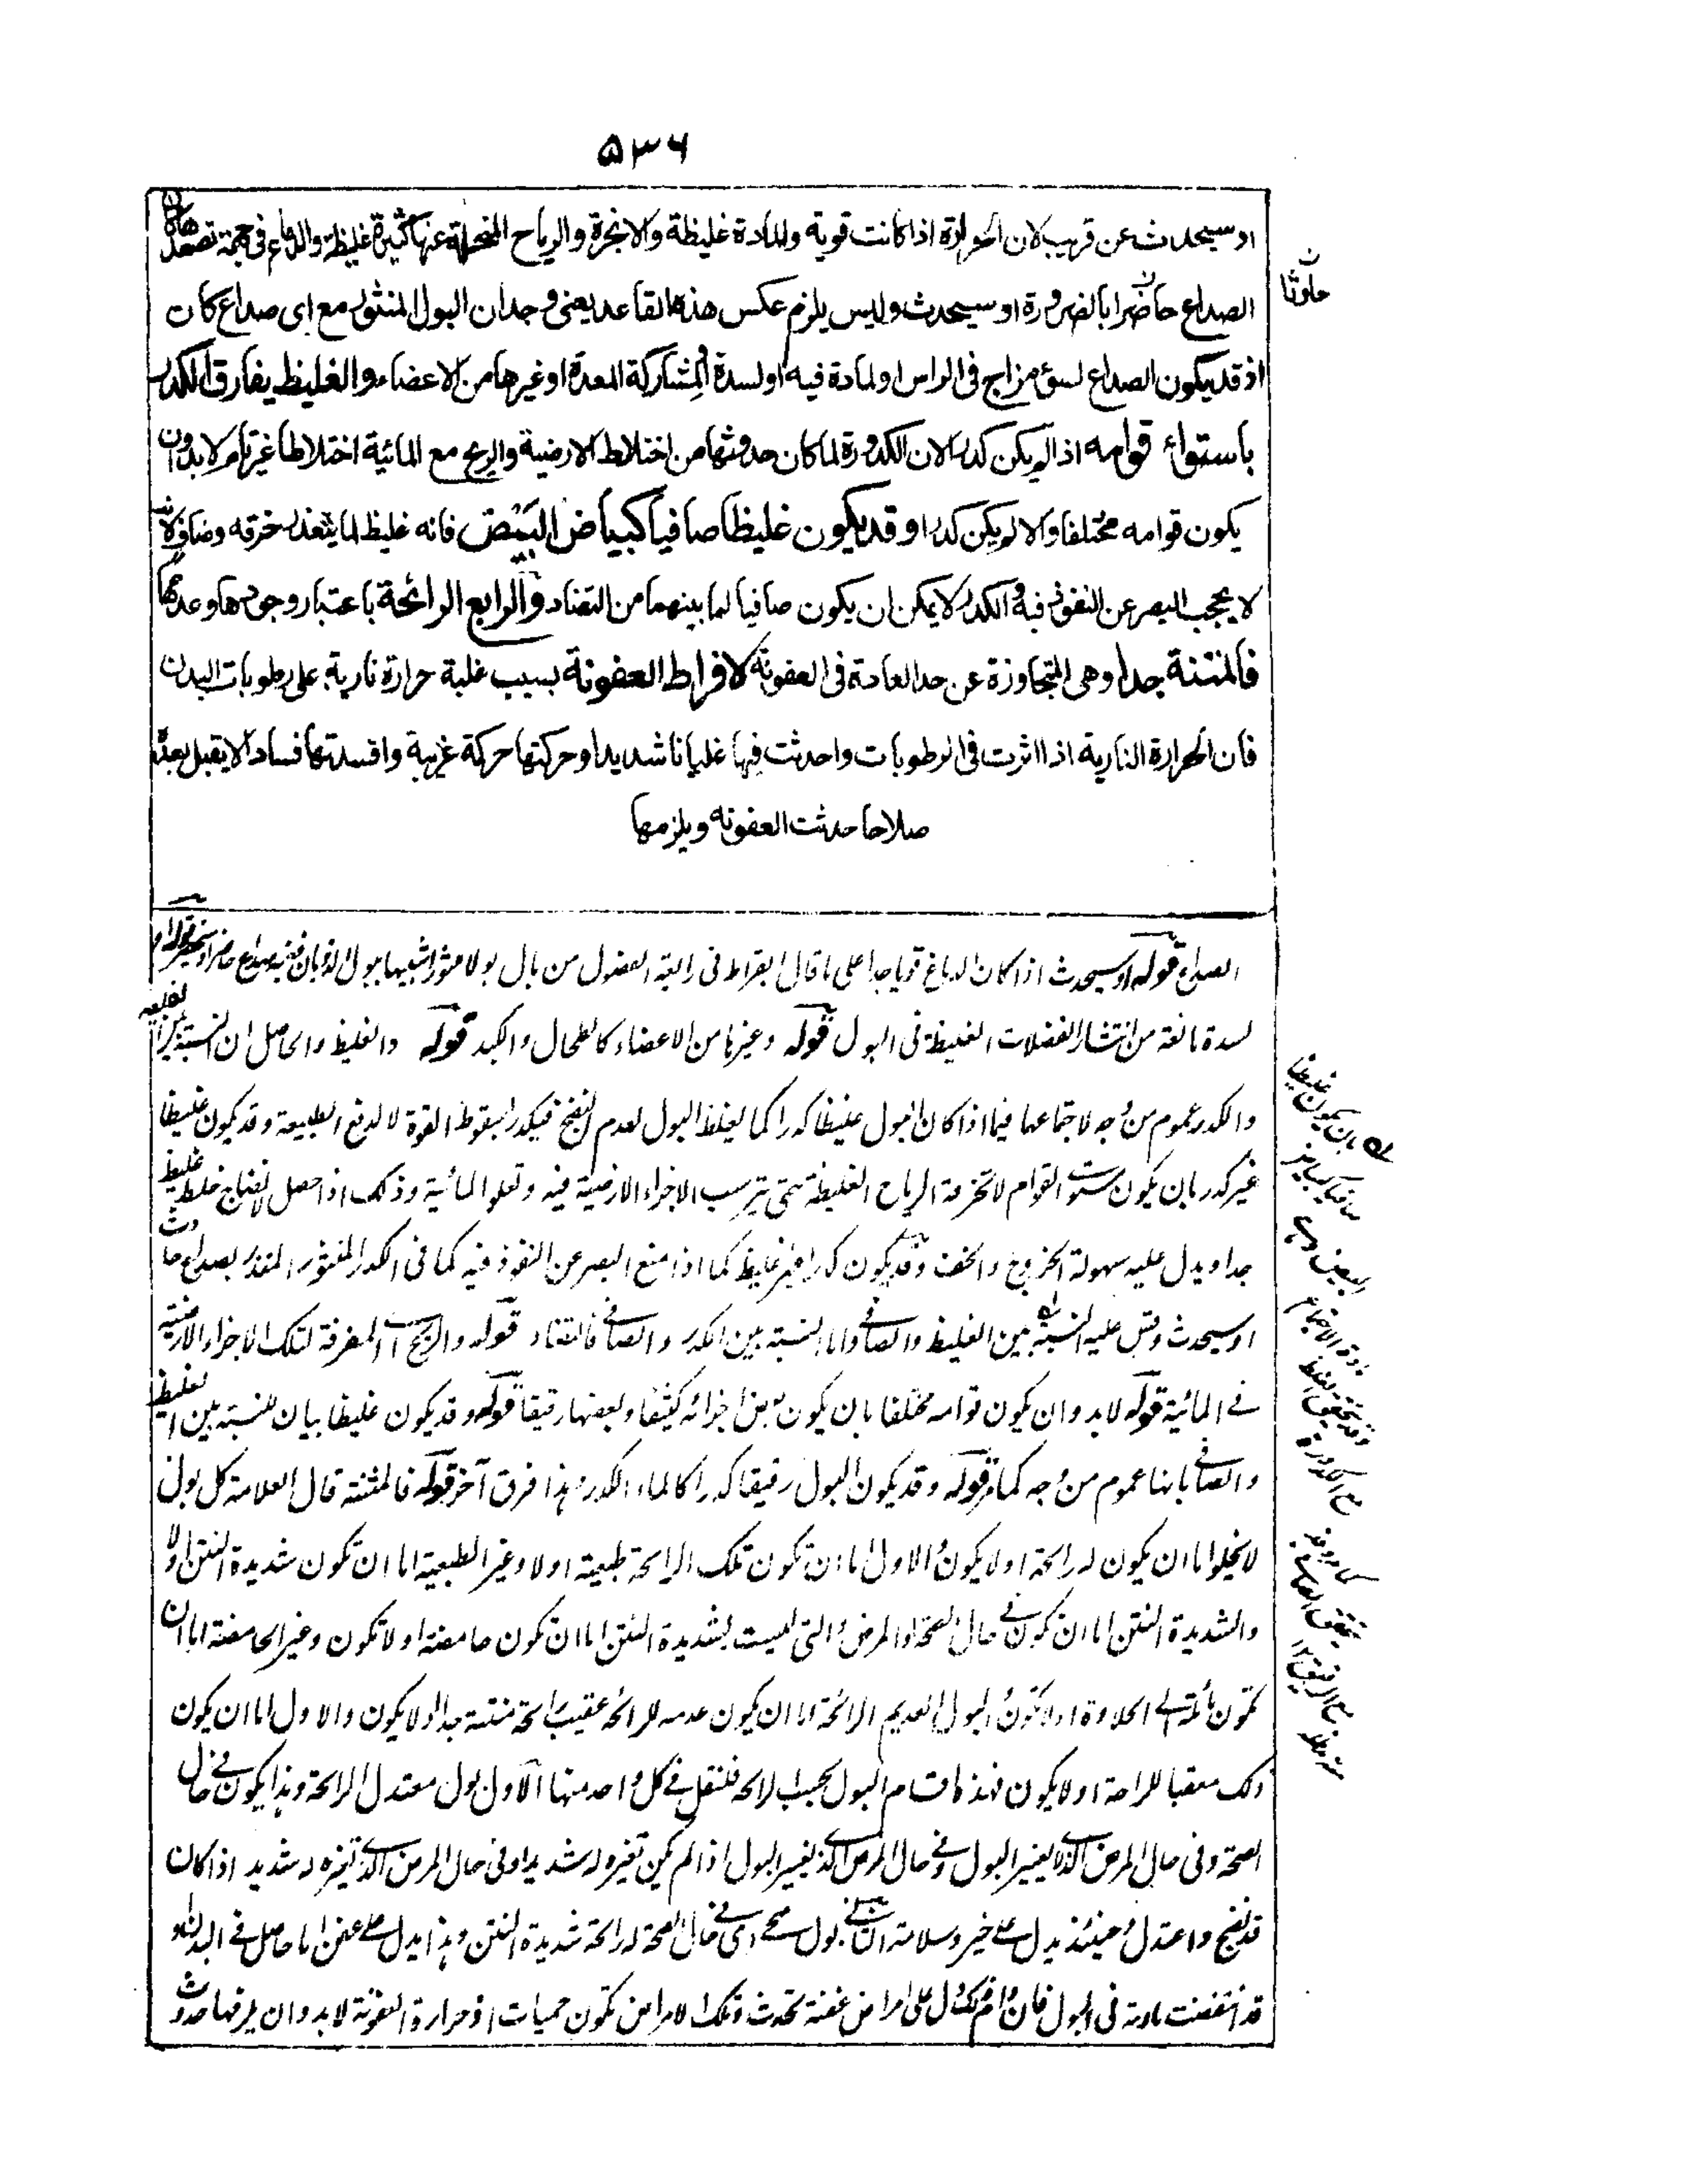 ۵۳۶
او سيحدث عن قريب لان الحرارة اذا كانت قوية والمادة غليظة والابخرة والرياح المنحلة عنها كثيرة غليظة والدماغ فى جهة تصعدها كان
الصداع حاضرا بالضرورة او سيحدث وليس يلزم عكس هذه القاعد يعنى وجدان البول المنثور مع اى صداع كان
اذ قد يكون الصداع لسوء مزاج فى الراس او لمادة فيه او لسدة او لمشاركة المعدة او غيرها من الاعضاء والغليظ يفارق الكدر
باستواء قوامه اذا لم يكن كدرا لان الكدورة لما كان حدوثها من اختلاط الارضية والريح مع المائية اختلاطا غير تام لا بد وان
يكون قوامه مختلفا والا لم يكن كدرا وقد يكون غليظا صافيا كبياض البيض فانه غليظ لما يتعذر خرقه وصاف لانه
لا يحجب البصر عن النفوذ فيه والكدر لا يمكن ان يكون صافيا لما بينهما من التضاد والرابع الرائحة باعتبار وجودها وعدمها
فالمنتنة جدا وهى المتجاوزة عن حد العادة فى العفونة لافراط العفونة بسبب غلبة حرارة نارية على رطوبات البدن
فان الحرارة النارية اذا اثرت فى الرطوبات واحدثت فيها غليانا شديدا وحركتها حركة غريبة وافسدتها فسادا لا يقبل بعده
صلاحا حدثت العفونه ويلزمها
حادثا
الصداع قوله او سيحدث اذا كان الدماغ قويا جدا على ما قال ابقراط فى رابعة الفصول من بال بولا متثورا شبيها ببول الدواب فبه صداع حاضر او سيحضر قوله او
لسدة مانعة من انتشار الفضلات الغليظة فى البول قوله وغيرها من الاعضاء كالطحال والكبد قوله والغليظ والحاصل ان النسبة بين الغليظ
والكدر عموم من وجه لاجتماعهما فيما اذا كان البول غليظا كدرا كما يغلظ البول لعدم النضج فيكدر لسقوط القوة لا لدفع الطبيعة وقد يكون غليظا
غير كدر بان يكون مستوى القوام لا تخرقه الرياح الغليظة حتى يترسب الاجزاء الارضية فيه وتعلو المائية وذلك اذا حصل لانضاج خلط غليظ
جدا ويدل عليه سهولة الخروج والخف وقد يكون كدرا غير غليظ كما اذا منع البصر عن النفوذ فيه كما فى الكدر المنثور المنذر بصداع حادث
او سيحدث وقس عليه النسبة بين الغليظ والصافى واما النسبة بين الكدر والصافى فالتضاد قوله والريح المفرقة لتلك الاجزاء الارضية
فى المائية قوله لا بد وان يكون قوامه مختلفا بان يكون بعض اجزائه كثيفا وبعضها رقيقا قوله وقد يكون غليظا بيان للنسبة بين الغليظ
والصافى بانها عموم من وجه كما مر قوله وقد يكون البول رقيقا كدرا كالماء الكدر وهذا فرق آخر قوله فالمنتنة قال العلامة كل بول
لا يخلوا اما ان يكون له رائحة او لا يكون والاول اما ان تكون تلك الرائحة طبيعية اولا وغير الطبيعية اما ان تكون شديدة النتن اولا
والشديدة النتن اما ان تكون فى حال الصحة او المرض والتى ليست بشديدة النتن اما ان تكون حامضة او لا تكون وغير الحامضة اما ان
تكون مائلة الى الحلاوة او لا تكون والبول العديم الرائحة اما ان يكون عدمه للرائحة عقيب رائحة منتنة جدا او لا يكون والاول اما ان يكون
ذلك معقبا للراحة او لا يكون فهذه اقسام البول بحسب الرائحة فلنقل فى كل واحد منها الاول بول معتدل الرائحة وهذا يكون فى حال
الصحة وفى حال المرض الذى لا يغير البول وفى حال المرض الذى يغير البول اذا لم يكن تغيره له شديدا وفى حال المرض الذى تغيره له شديد اذا كان
قد نضج واعتدل وحينئذ يدل على خير وسلامة الثانى بول صحى اى فى حال الصحة له رائحة شديدة النتن وهذا يدل على عفن اما حاصل فى البدن او
قد انتفضت مادته فى البول فان دام ذلك دل على امراض عفنة تحدث وتلك الامراض تكون حميات اذ حرارة العفونة لا بد وان يلزمها حدوث